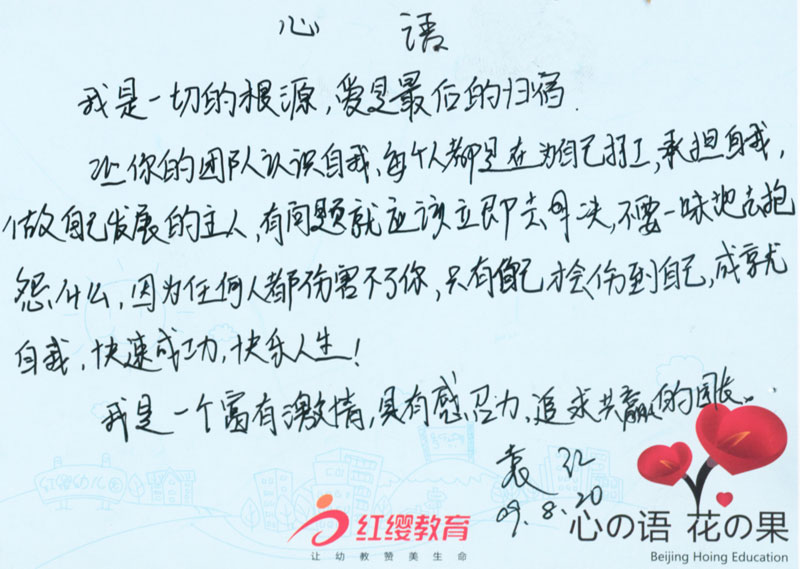 心 语
我是一切的根源,爱是最后的归宿.
让你的团队认识自我,每个人都是在为自己打工,承担自我,
做自己发展的主人,有问题就应该立即去解决,不要一味地去抱
怨什么,因为任何人都伤害不了你,只有自己才会伤到自己,成就
自我,快速成功,快乐人生!
我是一个富有激情,具有感召力,追求共赢的园长。
袁红
09.8.20
红缨教育
让幼教赞美生命
心の语 花の果
Beijing Hoing Education